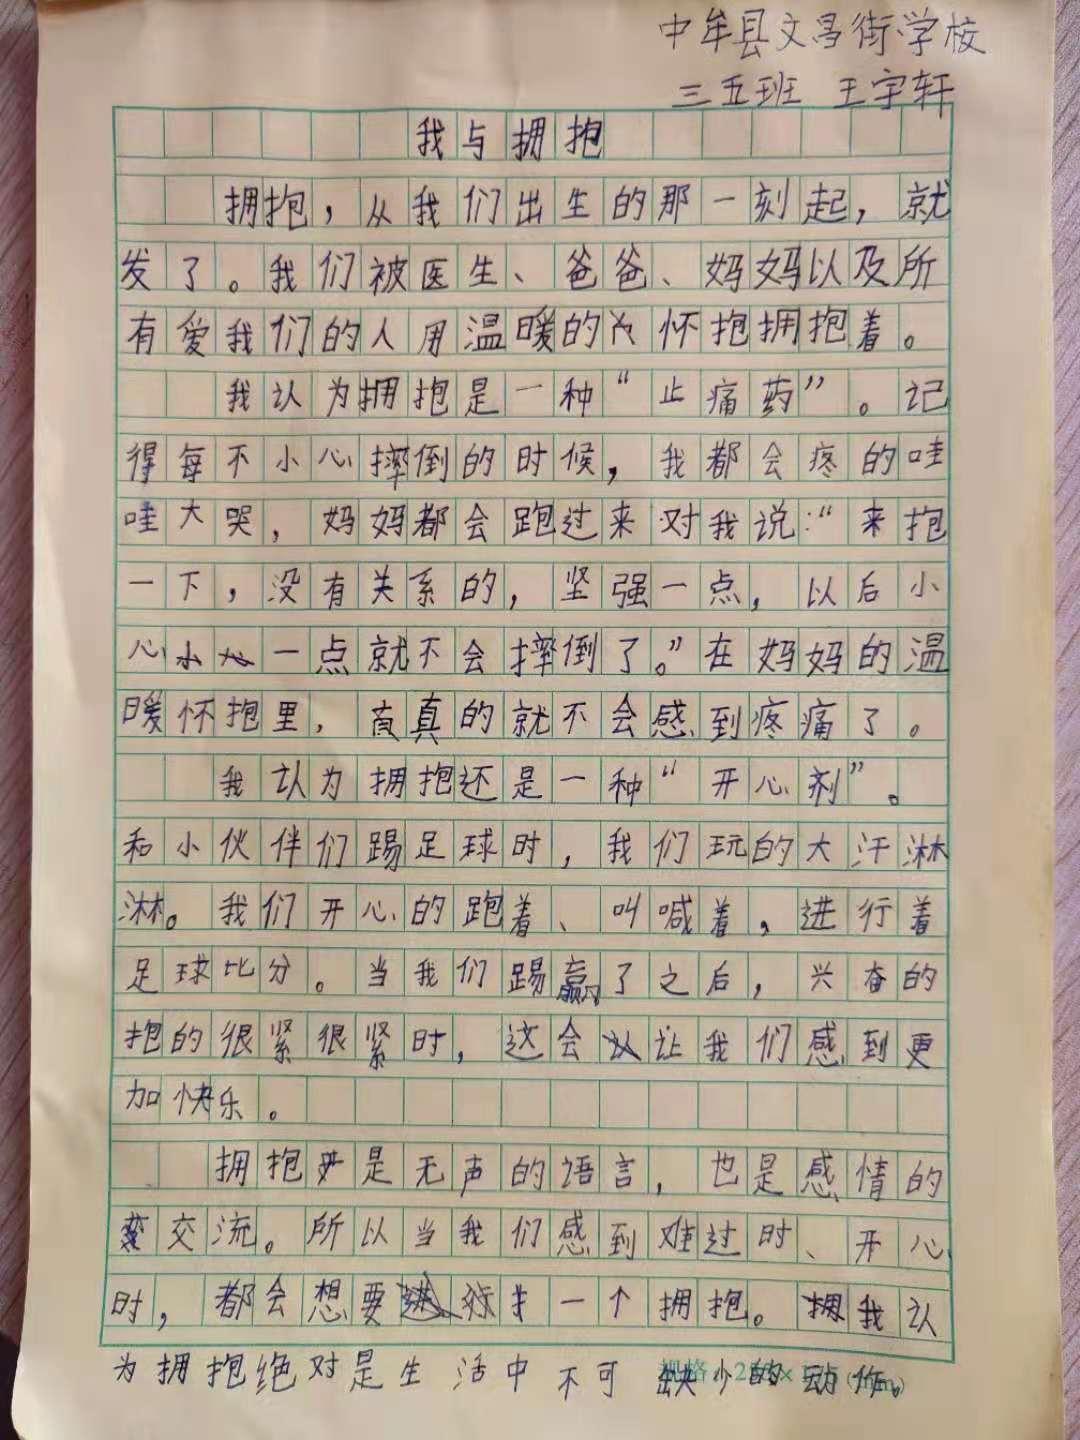 中牟县文昌街学校
三五班 王宇轩
我与拥抱
拥抱，从我们出生的那一刻起，就
发了。我们被医生、爸爸、妈妈以及所
有爱我们的人用温暖的怀抱拥抱着。
我认为拥抱是一种“止痛药”。记
得每不小心摔倒的时候，我都会疼的哇
哇大哭，妈妈都会跑过来对我说：“来抱
一下，没有关系的，坚强一点，以后小
心一点就不会摔倒了。”在妈妈的温
暖怀抱里，真的就不会感到疼痛了。
我认为拥抱还是一种“开心剂”。
和小伙伴们踢足球时，我们玩的大汗淋
淋。我们开心的跑着、叫喊着，进行着
足球比分。当我们踢赢了之后，兴奋的
抱的很紧很紧时，这会让我们感到更
加快乐。
拥抱是无声的语言，也是感情的
交流。所以当我们感到难过时、开心
时，都会想要一个拥抱。我认
为拥抱绝对是生活中不可缺少的动作。